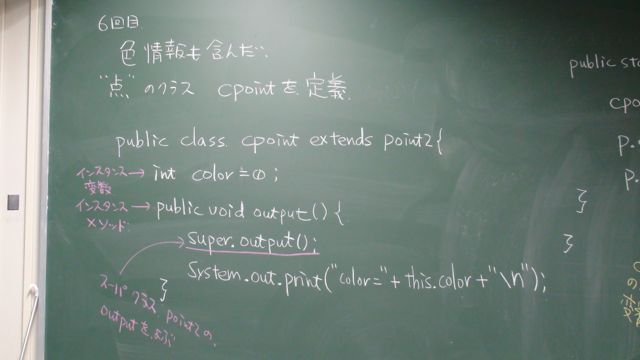 6回目
色情報も含んだ…
"点"のクラス cpointを定義
public class cpoint extends point2{
インスタンス→ int color=0;
変数
インスタンス→ public void output(){
メソッド
super.output();
System.out.print("color="+this.color+"\n");
}
スーパクラス point2の
outputをよぶ
public sta
cpo
p.
p.
}
}
の
変数